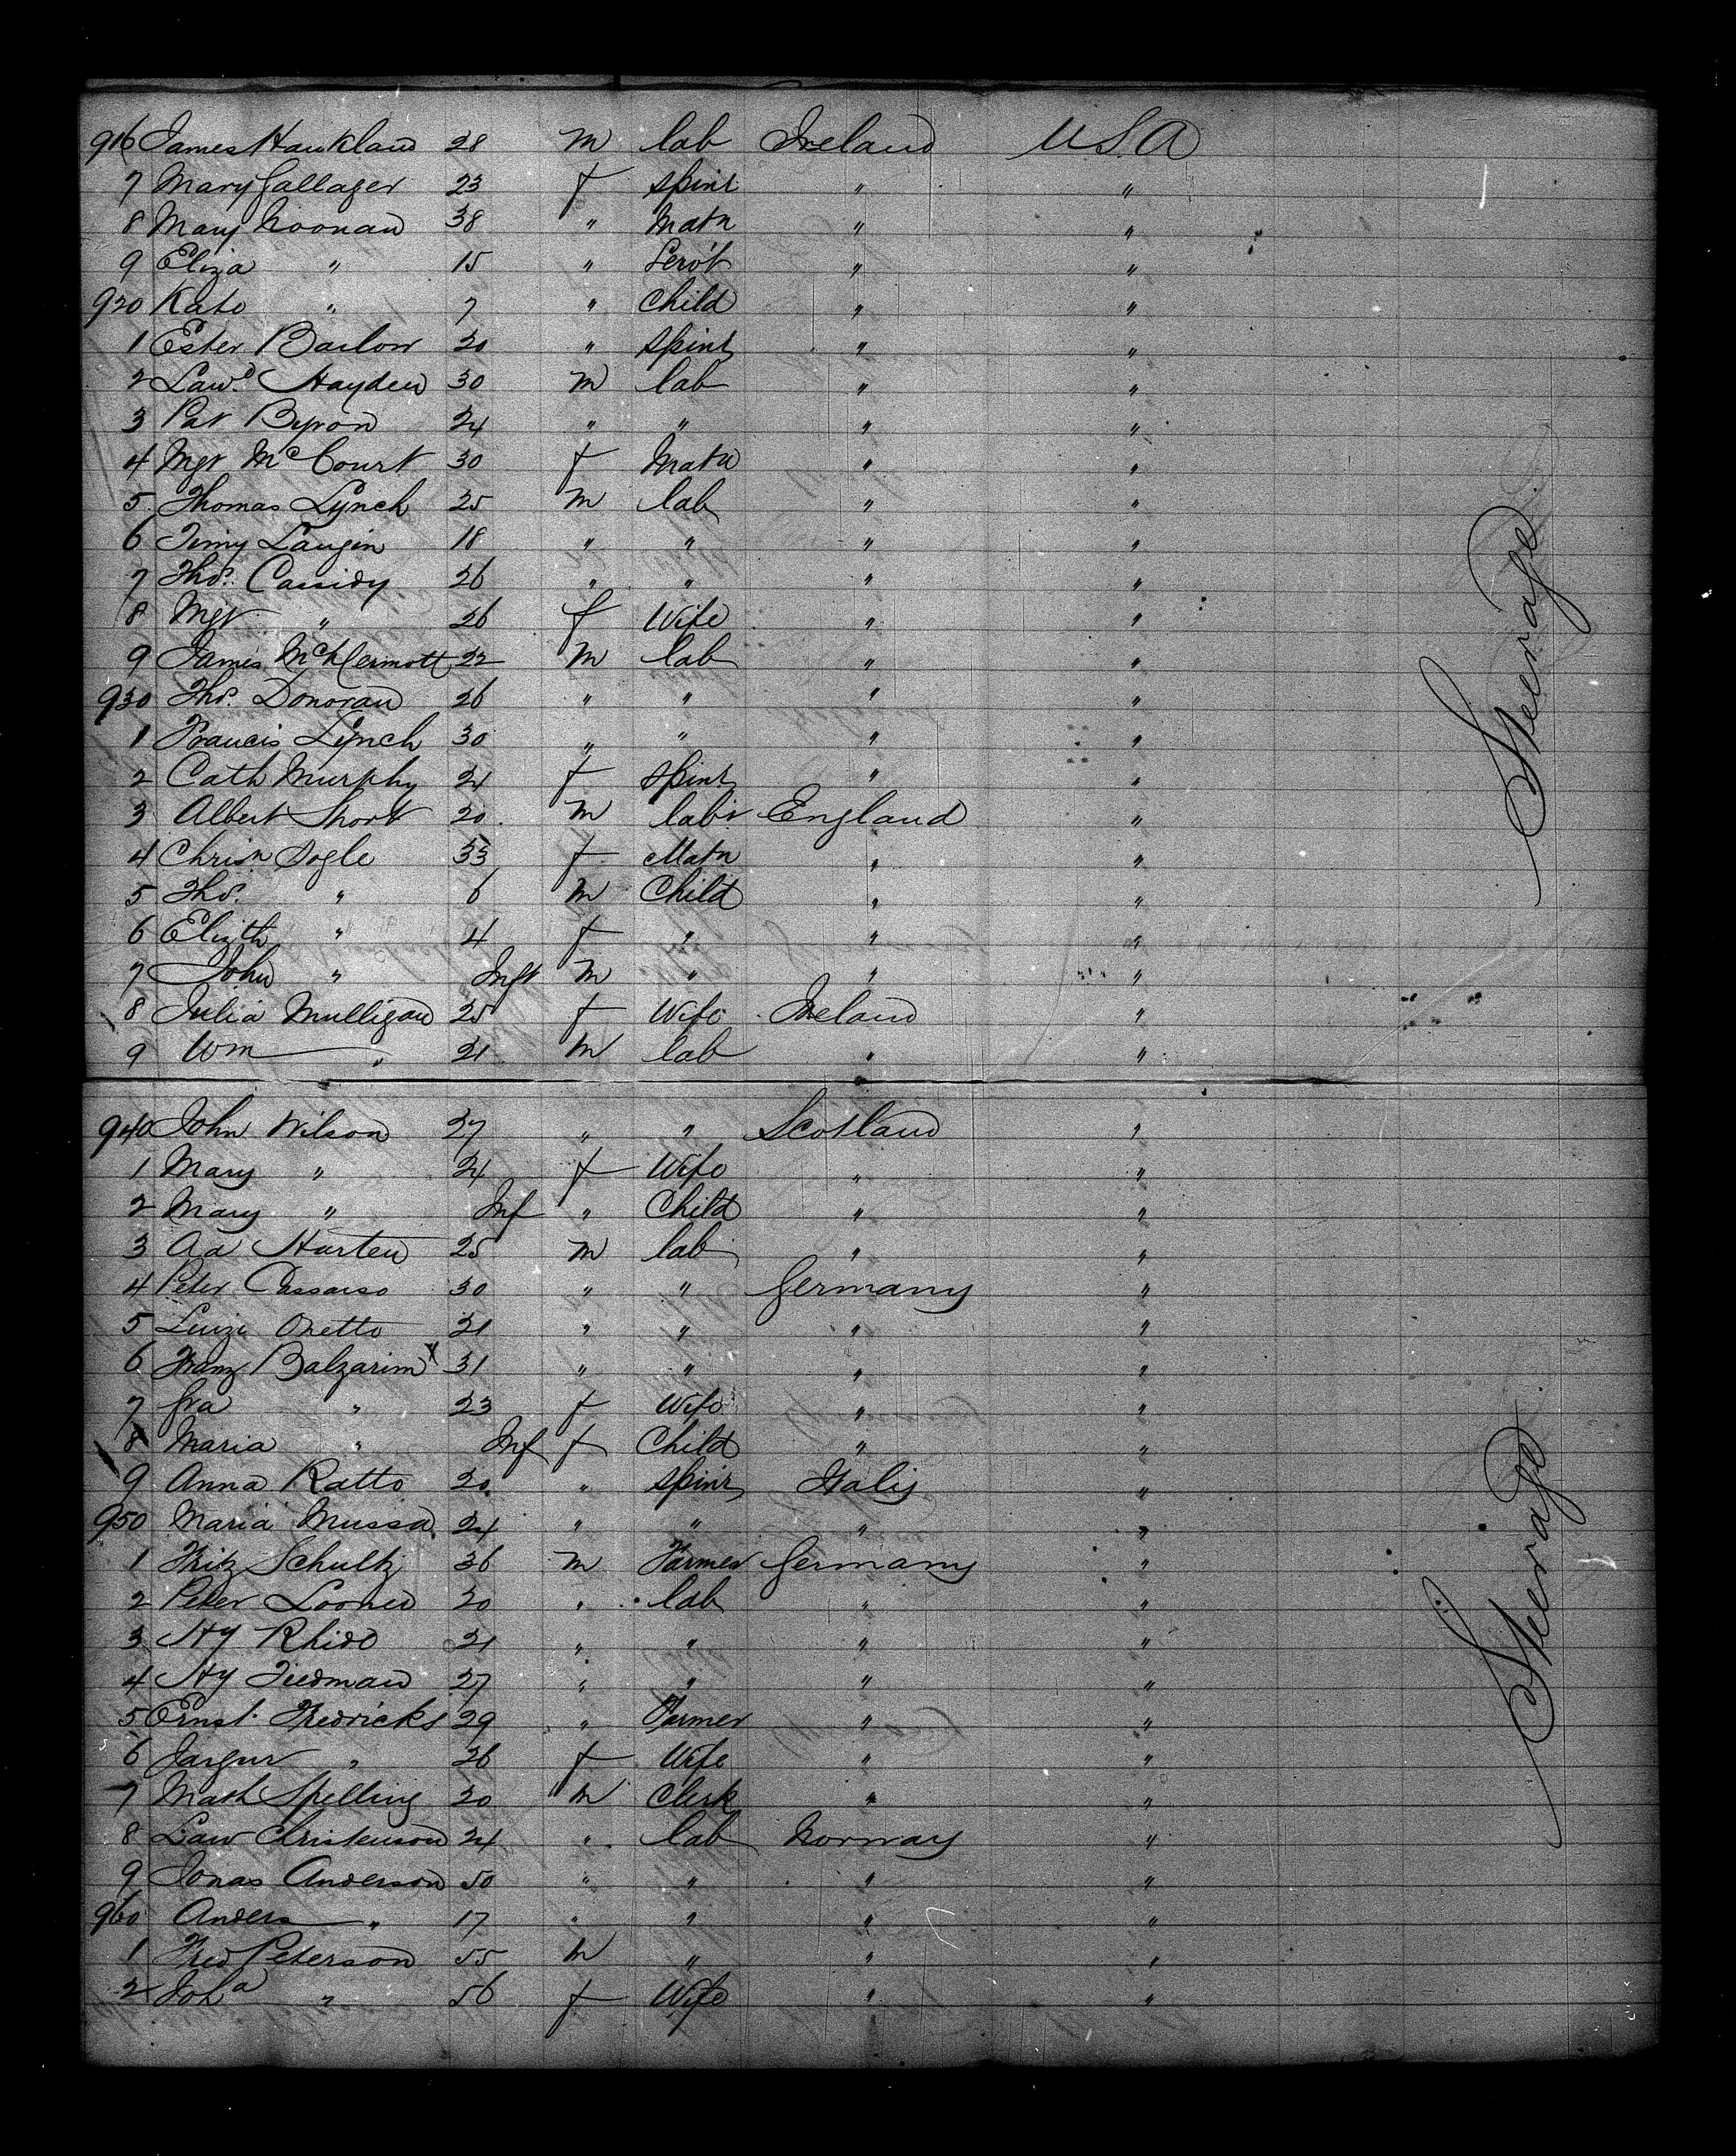 916 James Haukland 28 m lab Ireland USA
7 Mary Gallager 23 f spinr " "
8 Mary Noonan 38 " Matn " "
9 Eliza " 15 " Servt " "
920 Kate " 7 " Child " "
1 Ester Barlow 20 " spinr " "
2 Lawd. Hayden 30 m lab " "
3 Pat Byron 24 " " " "
4 Mgt McCourt 30 f Matn " "
5 Thomas Lynch 25 m lab " "
6 Timy Laugin 18 " " " "
7 Thos. Cassidy 26 " " " "
8 Mgt " 26 f Wife " "
9 James McDermott 22 m lab " "
930 Thos. Donovan 26 " " " "
1 Francis Lynch 30 " " " "
2 Cath Murphy 24 f spinr " "
3 Albert Short 20 m labr England "
4 Chrisn Sogle 33 f Matn " "
5 Thos. " 6 m Child " "
6 Elizth " 4 f " " "
7 John " Inft m " " "
8 Julia Mulligan 25 f Wife Ireland "
9 Wm " 21 m lab " "
940 John Wilson 27 " " Scotland "
1 Mary " 24 f Wife " "
2 Mary " Inf " Child " "
3 Ad Harten 25 m lab " "
4 Peter Cassaiso 30 " " Germany "
5 Luizi Onetto 21 " " " "
6 Franz Balzarim 31 " " " "
7 fra " 23 f Wife " "
8 Maria " Inf f Child " "
9 Anna Ratto 20 " spinr Italy "
950 Maria Mussa 24 " " " "
1 Fritz Schultz 36 m Farmer Germany "
2 Peter 20 " lab " "
3 Hy Rhide 21 " " " "
4 Hy Tiedman 27 " " " "
5 Ernst. Fredricks 29 " Farmer " "
6 " 26 f Wife " "
7 Math Spelling 20 m Clerk " "
8 Law Christenson 24 " lab Norway "
9 Jonas Anderson 50 " " " "
960 Anders " 17 " " " "
1 Fred Peterson 55 m " " "
2 Joha " 56 f Wife " "
Steerage
Steerage